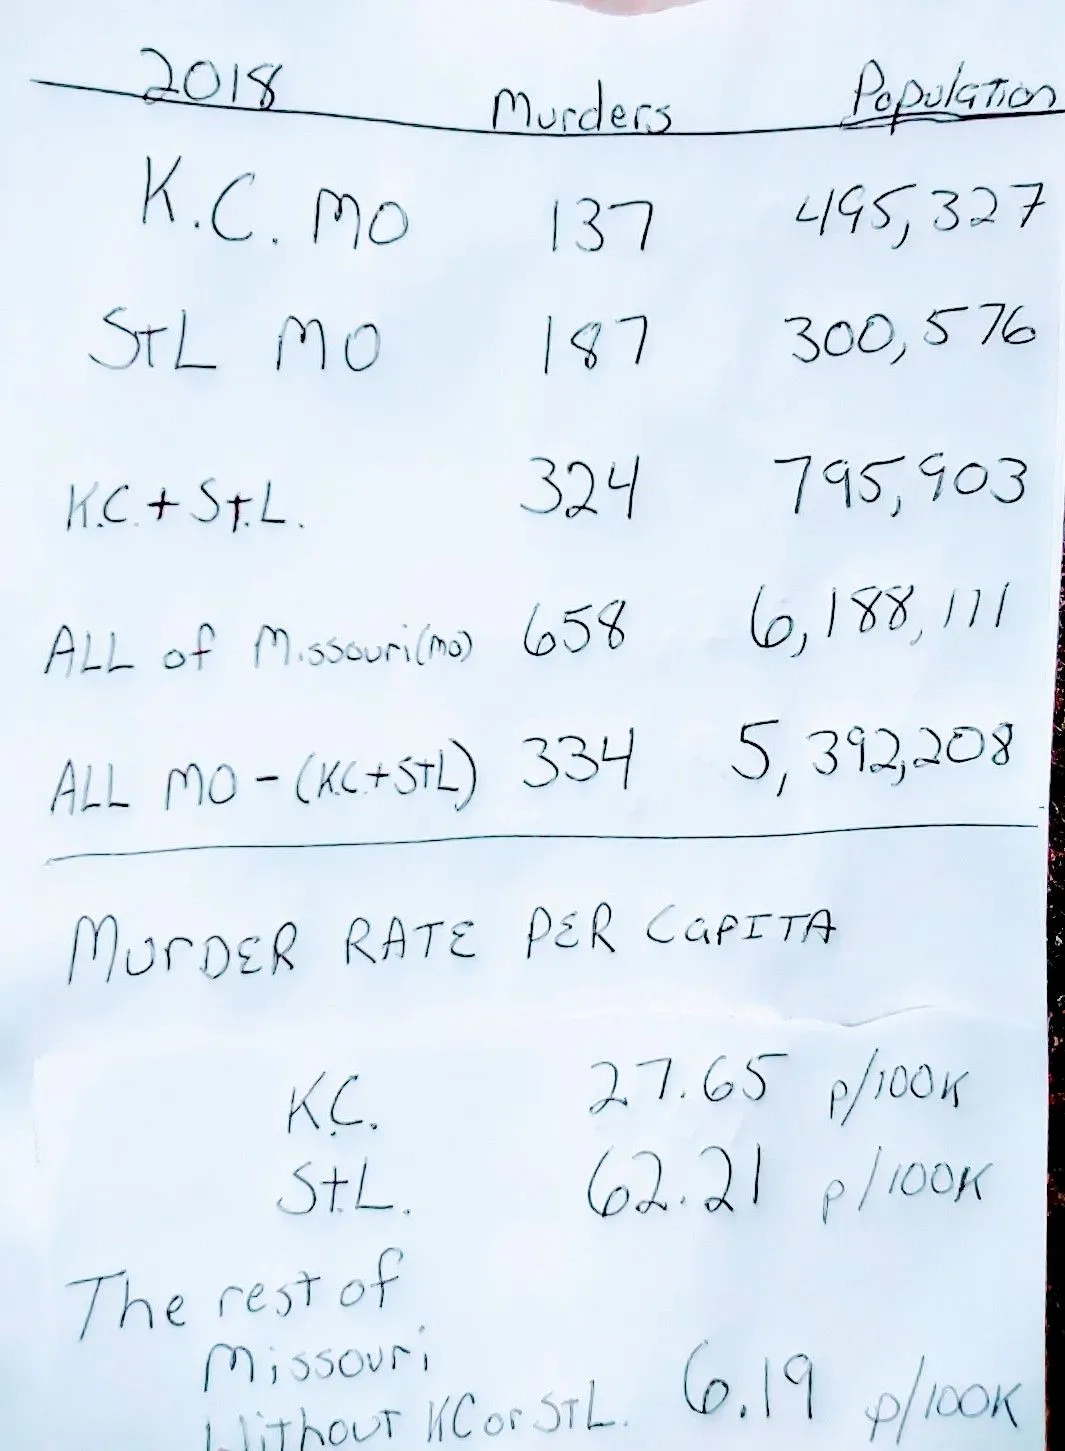 2018 Murders Population
K.C. MO 137 495,327
StL MO 187 300,576
K.C. + St.L. 324 795,903
ALL of Missouri(mo) 658 6,188,111
ALL MO - (K.C.+StL) 334 5,392,208
MURDER RATE PER CAPITA
K.C. 27.65 p/100K
St.L. 62.21 p/100K
The rest of
Missouri
Without KC or StL. 6.19 p/100K